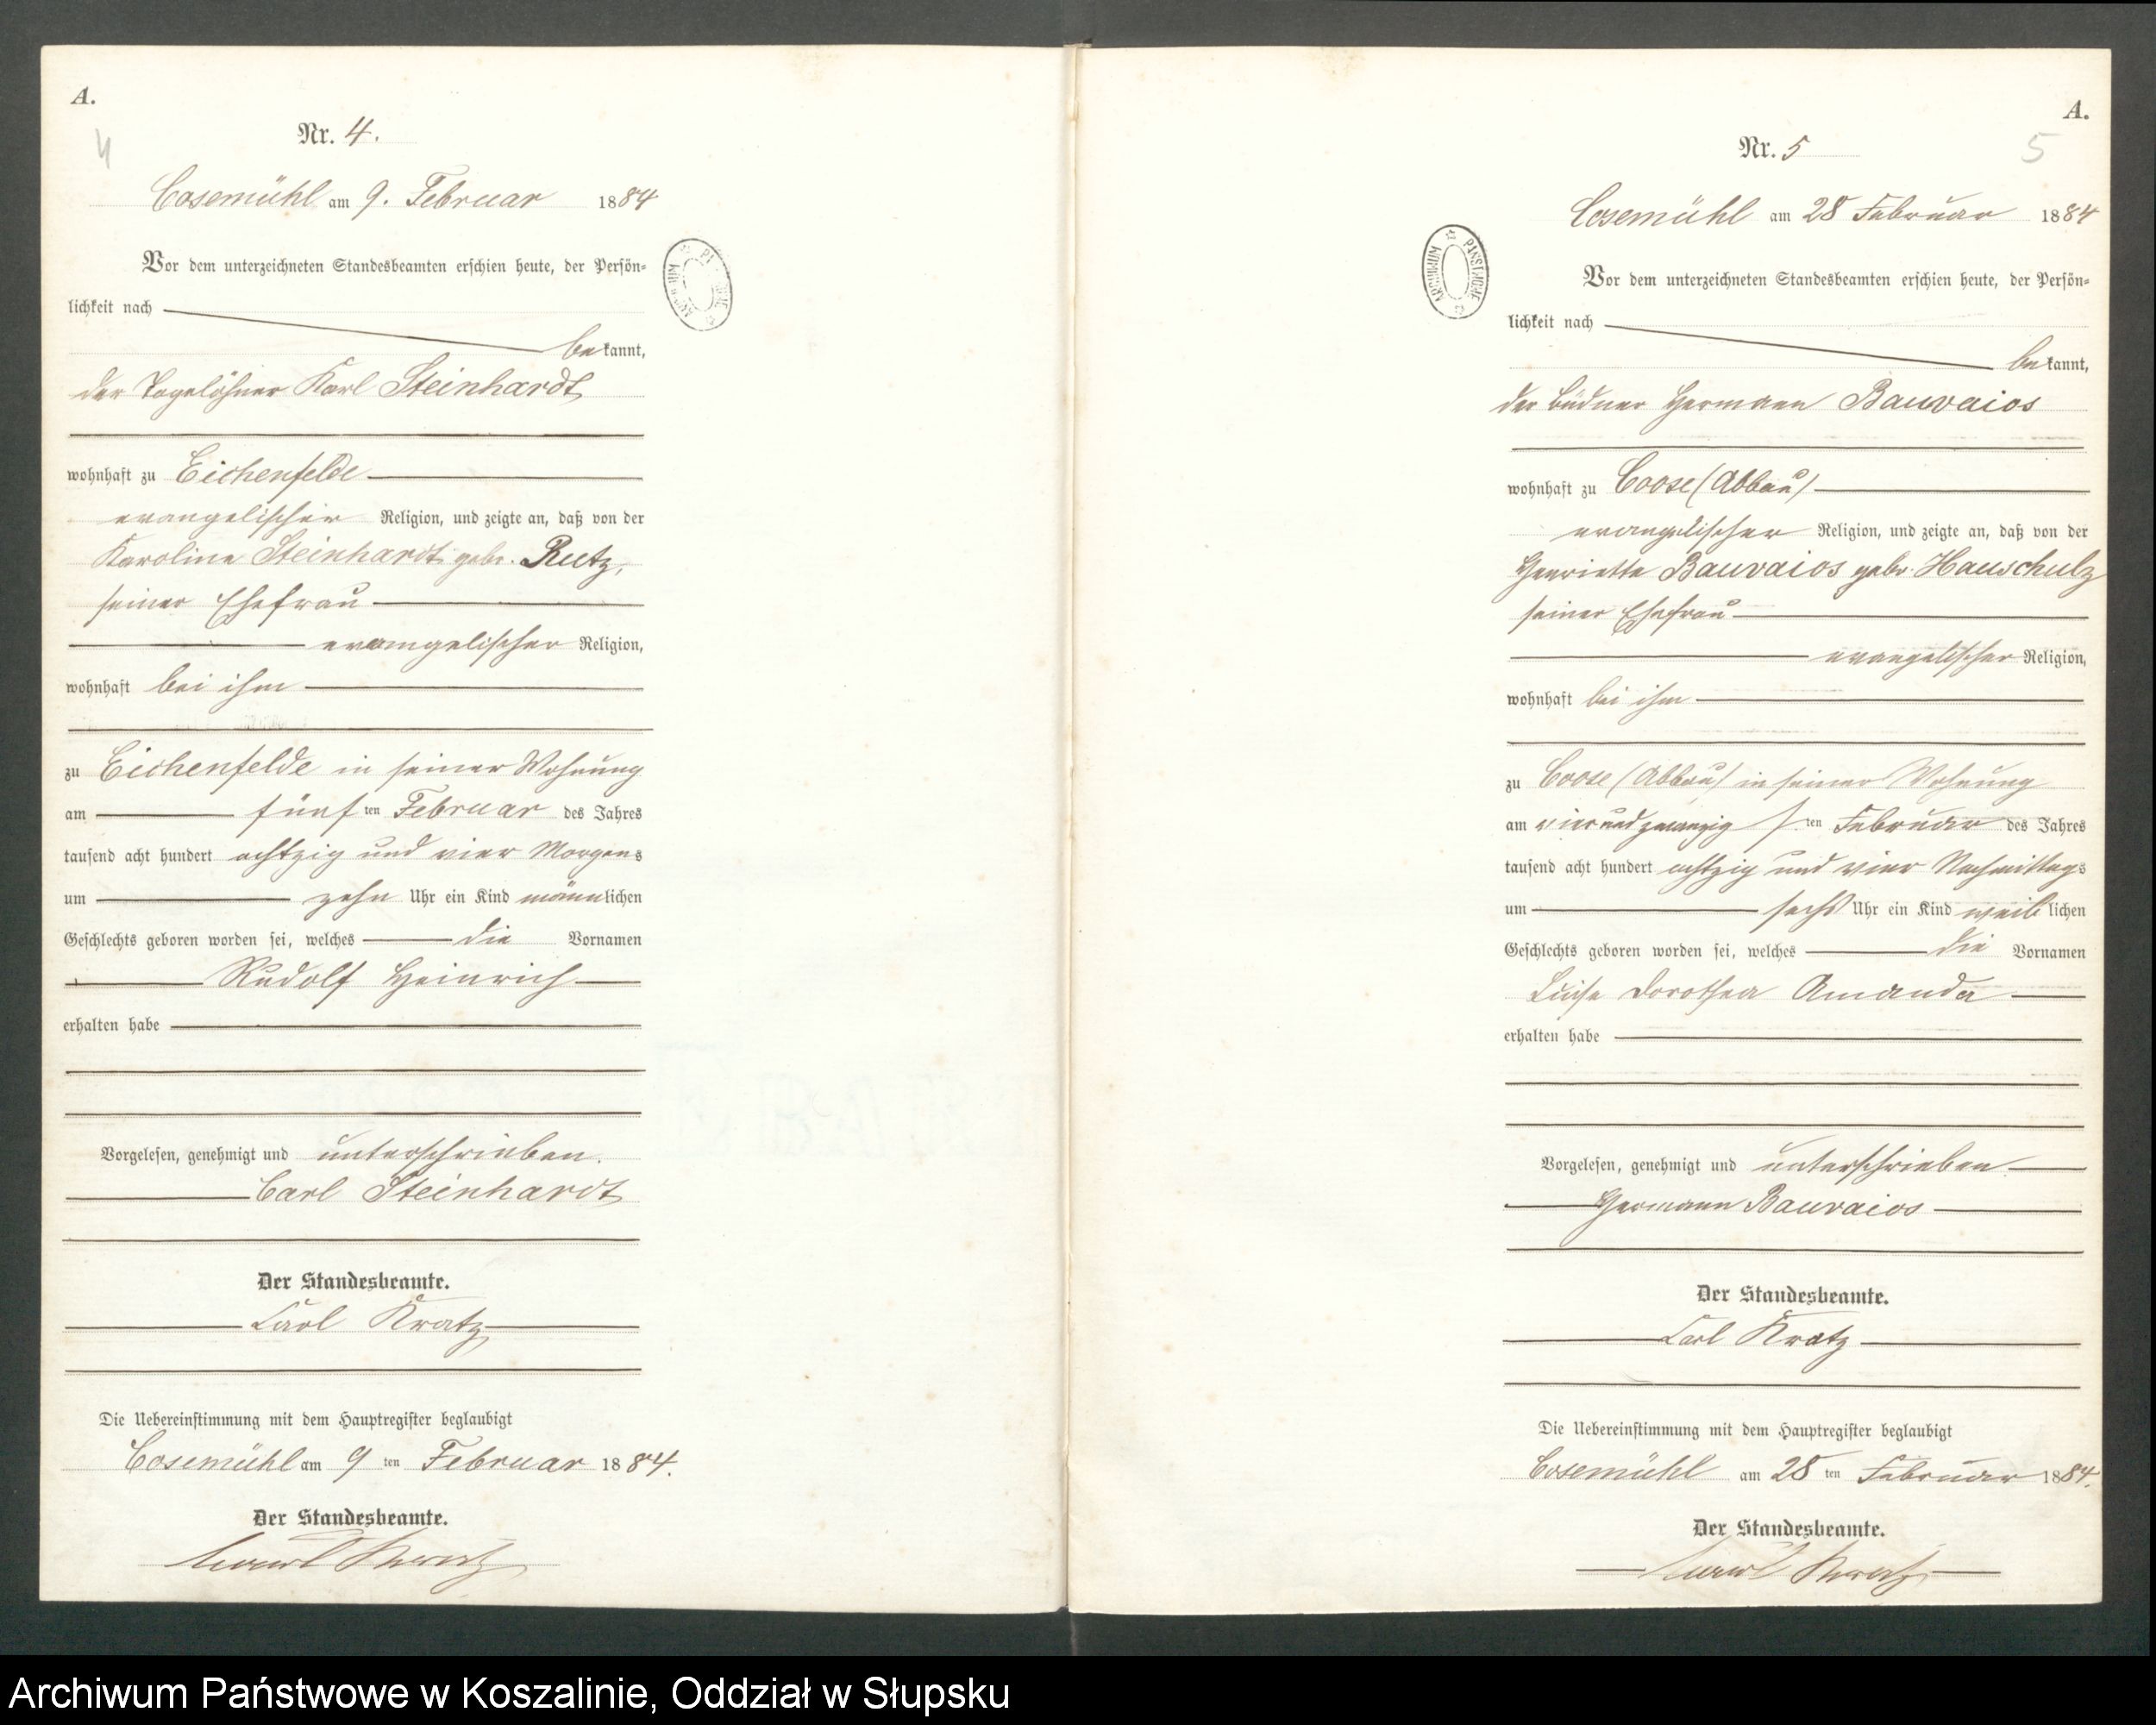 A.
4
Nr. 4.
Cosemühl am 9. Februar 1884
Vor dem unterzeichneten Standesbeamten erschien heute, der Persön-
lichkeit nach
bekannt,
der Tagelöhner Karl Steinhardt
wohnhaft zu Eichenfelde
evangelischer Religion, und zeigte an, daß von der
Karoline Steinhardt gebr. Rutz,
seiner Ehefrau
evangelischer Religion,
wohnhaft bei ihm
zu Eichenfelde in seiner Wohnung
am fünf ten Februar des Jahres
tausend acht hundert achtzig und vier Morgens
um zehn Uhr ein Kind männlichen
Geschlechts geboren worden sei, welches die Vornamen
Rudolf Heinrich
erhalten habe
Vorgelesen, genehmigt und unterschrieben.
Carl Steinhardt
Der Standesbeamte.
Carl Kratz
Die Uebereinstimmung mit dem Hauptregister beglaubigt
Cosemühl am 9 ten Februar 1884.
Der Standesbeamte.
Carl Kratz
A.
5
Nr. 5
Cosemühl am 28 Februar 1884
ARCHIWUM PAŃSTWOWE
Vor dem unterzeichneten Standesbeamten erschien heute, der Persön-
lichkeit nach
bekannt,
der Büdner Hermann Bauvaios
wohnhaft zu Coose (Abbau)
evangelischer Religion, und zeigte an, daß von der
Henriette Bauvaios gebr. Hauschulz
seiner Ehefrau
evangelischer Religion,
wohnhaft bei ihm
zu Coose (Abbau) in seiner Wohnung
am vier und zwanzig s ten Februar des Jahres
tausend acht hundert achtzig und vier Nachmittags
um sechs Uhr ein Kind weiblichen
Geschlechts geboren worden sei, welches die Vornamen
Luise Dorothea Amanda
erhalten habe
Vorgelesen, genehmigt und unterschrieben
Hermann Bauvaios
Der Standesbeamte.
Carl Kratz
Die Uebereinstimmung mit dem Hauptregister beglaubigt
Cosemühl am 28 ten Februar 1884.
Der Standesbeamte.
Carl Kratz
Archiwum Państwowe w Koszalinie, Oddział w Słupsku